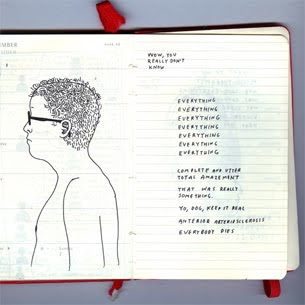 WOW, YOU
REALLY DON'T
KNOW
EVERYTHING
EVERYTHING
EVERYTHING
EVERYTHING
EVERYTHING
EVERYTHING
EVERYTHING
COMPLETE AND UTTER
TOTAL AMAZEMENT
THAT WAS REALLY
SOMETHING.
YO, DOG, KEEP IT REAL
ANTERIOR ARTERIOSCLEROSIS
EVERYBODY DIES